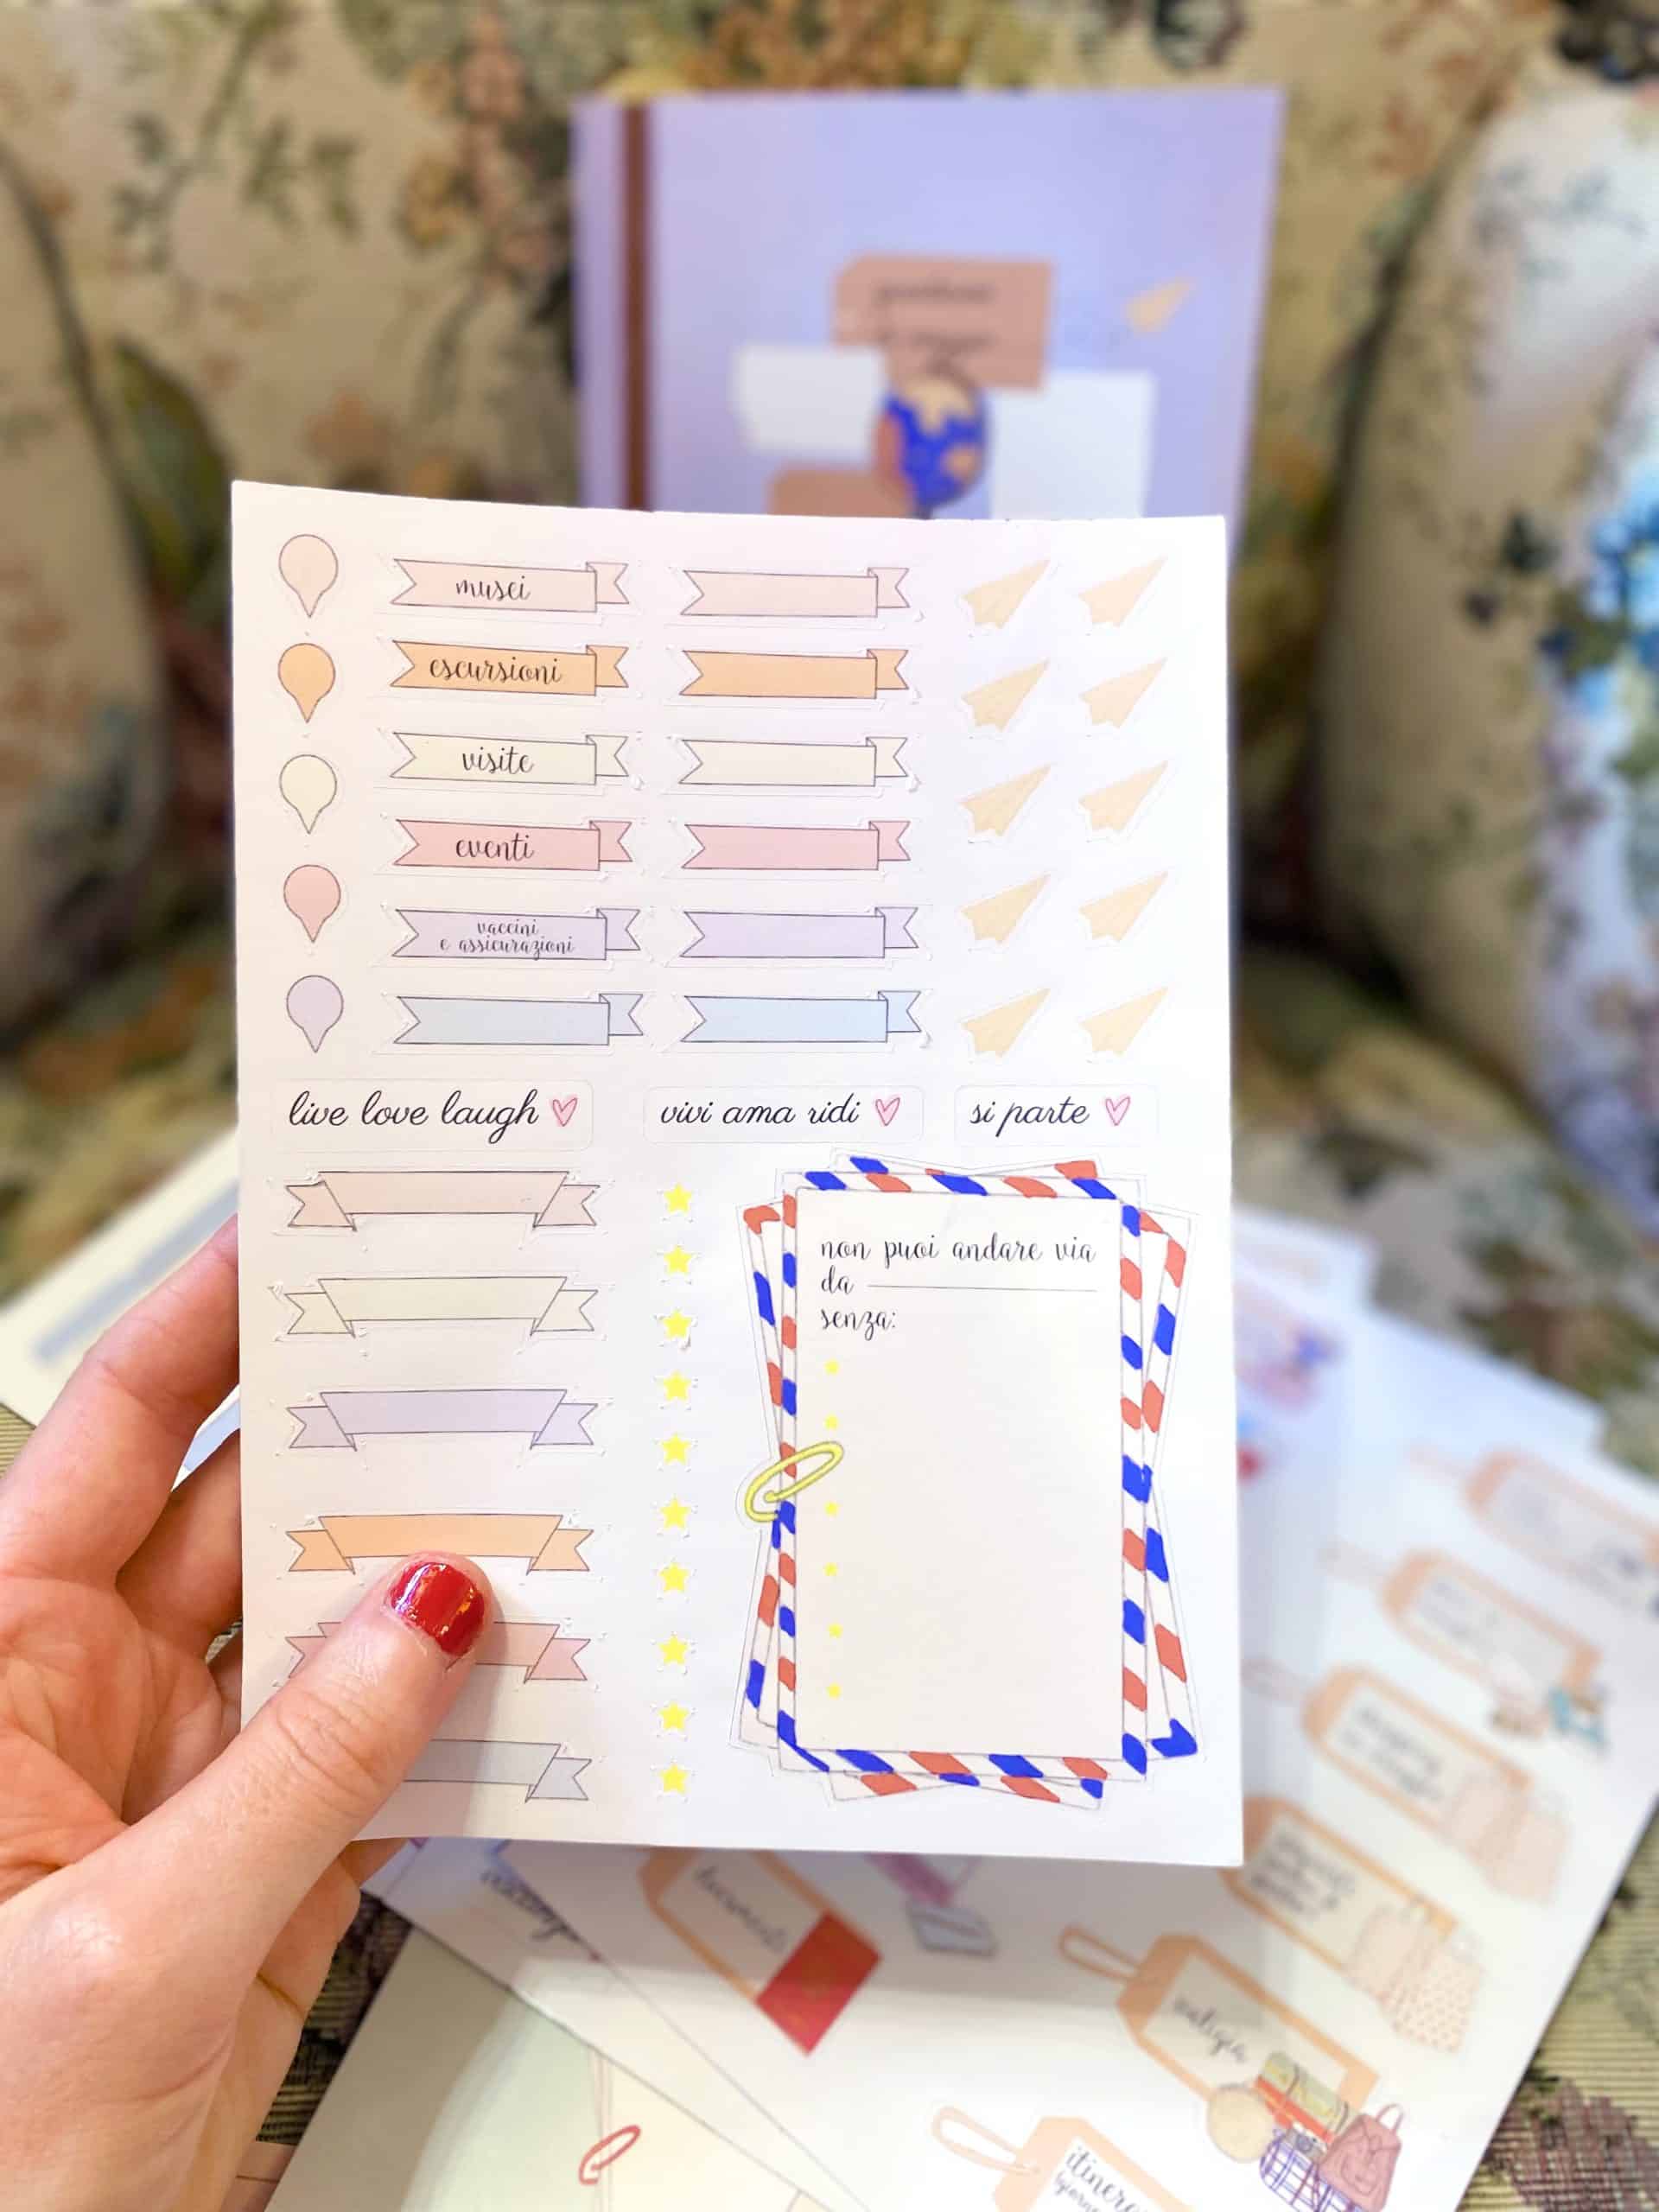 musei
escursioni
visite
eventi
vaccini
e assicurazioni
live love laugh
vivi ama ridi
si parte
non puoi andare via
da
senza:
documenti
valigia